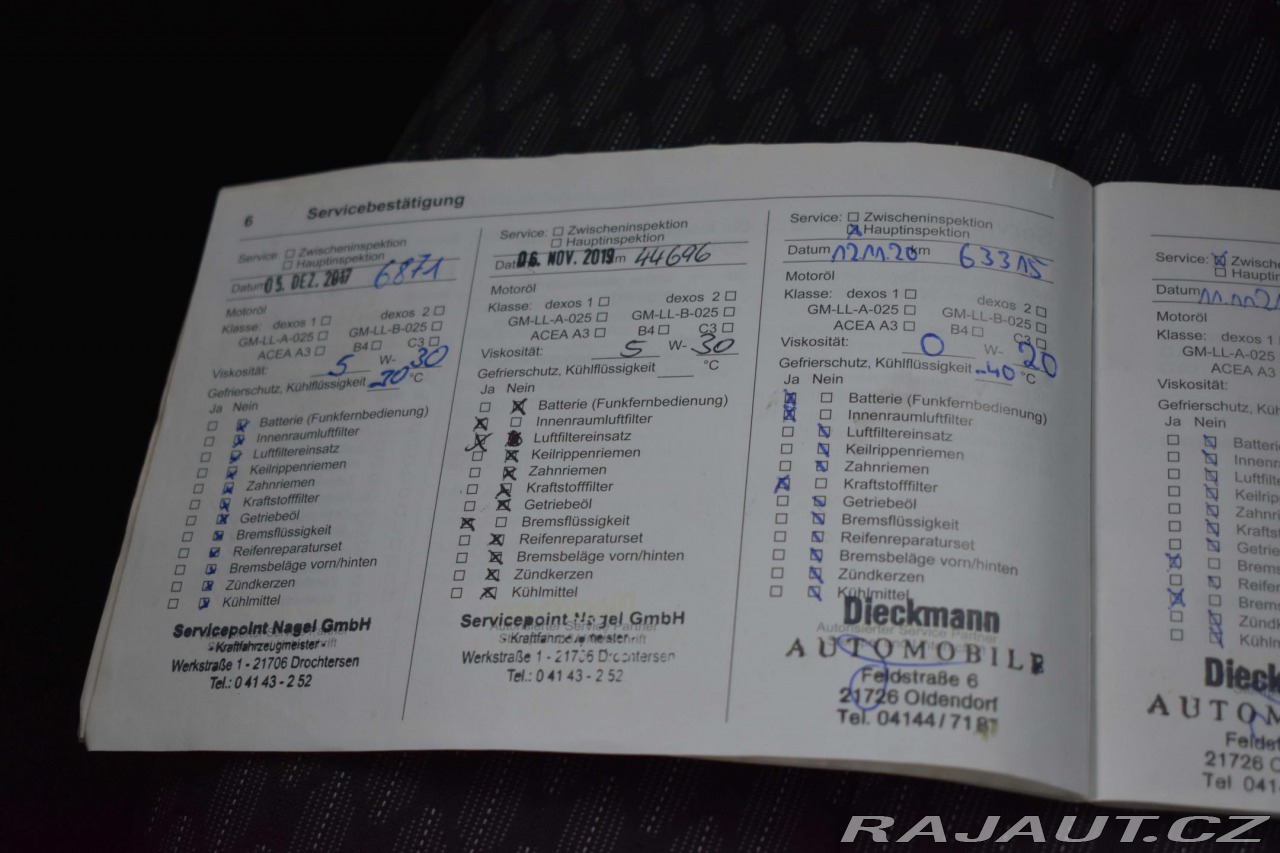 6 Servicebestätigung
Service: ☐ Zwischeninspektion
☐ Hauptinspektion
Datum 05. DEZ. 2017 6871
Motoröl
Klasse: dexos 1 ☐ dexos 2 ☐
GM-LL-A-025 ☐ GM-LL-B-025 ☐
ACEA A3 ☐ B4 ☐ C3 ☐
Viskosität: 5 W- 30
Gefrierschutz, Kühlflüssigkeit -30 °C
Ja Nein
☐ ☒ Batterie (Funkfernbedienung)
☐ ☒ Innenraumluftfilter
☐ ☒ Luftfiltereinsatz
☐ ☒ Keilrippenriemen
☐ ☒ Zahnriemen
☐ ☒ Kraftstofffilter
☐ ☒ Getriebeöl
☐ ☒ Bremsflüssigkeit
☐ ☒ Reifenreparaturset
☐ ☒ Bremsbeläge vorn/hinten
☐ ☒ Zündkerzen
☐ ☒ Kühlmittel
Servicepoint Nagel GmbH
- Kraftfahrzeugmeister -
Werkstraße 1 - 21706 Drochtersen
Tel.: 0 41 43 - 2 52
Service: ☐ Zwischeninspektion
☐ Hauptinspektion
06. NOV. 2019 km 44696
Motoröl
Klasse: dexos 1 ☐ dexos 2 ☐
GM-LL-A-025 ☐ GM-LL-B-025 ☐
ACEA A3 ☐ B4 ☐ C3 ☐
Viskosität: 5 W- 30
Gefrierschutz, Kühlflüssigkeit °C
Ja Nein
☐ ☒ Batterie (Funkfernbedienung)
☒ ☐ Innenraumluftfilter
☒ Luftfiltereinsatz
☐ ☒ Keilrippenriemen
☐ ☒ Zahnriemen
☐ ☒ Kraftstofffilter
☐ ☒ Getriebeöl
☒ ☐ Bremsflüssigkeit
☐ ☒ Reifenreparaturset
☐ ☒ Bremsbeläge vorn/hinten
☐ ☒ Zündkerzen
☐ ☒ Kühlmittel
Servicepoint Nagel GmbH
Autorisierter Service Partner
- Kraftfahrzeugmeister -
Werkstraße 1 - 21706 Drochtersen
Tel.: 0 41 43 - 2 52
Service: ☐ Zwischeninspektion
☒ Hauptinspektion
Datum 12.11.20 km 63315
Motoröl
Klasse: dexos 1 ☐ dexos 2 ☐
GM-LL-A-025 ☐ GM-LL-B-025 ☐
ACEA A3 ☐ B4 ☐ C3 ☐
Viskosität: 0 W- 20
Gefrierschutz, Kühlflüssigkeit -40 °C
Ja Nein
☒ ☐ Batterie (Funkfernbedienung)
☒ ☐ Innenraumluftfilter
☐ ☒ Luftfiltereinsatz
☐ ☒ Keilrippenriemen
☐ ☒ Zahnriemen
☒ ☐ Kraftstofffilter
☐ ☒ Getriebeöl
☐ ☒ Bremsflüssigkeit
☐ ☒ Reifenreparaturset
☐ ☒ Bremsbeläge vorn/hinten
☐ ☒ Zündkerzen
☐ ☒ Kühlmittel
Dieckmann
Autorisierter Service Partner
AUTOMOBILE
Feldstraße 6
21726 Oldendorf
Tel. 04144/7187
Service: ☒ Zwische
☐ Hauptin
Datum
Motoröl
Klasse: dexos 1
GM-LL-A-025
ACEA A3
Viskosität:
Gefrierschutz, Küh
Ja Nein
☐ ☒ Batterie
☐ ☒ Innenr
☐ ☒ Luftfilt
☐ ☒ Keilrip
☐ ☒ Zahnri
☐ ☒ Krafts
☐ ☒ Getrie
☒ ☐ Brems
☐ ☒ Reifer
☒ ☐ Brems
☐ ☒ Zündk
☐ ☒ Kühlm
Dieck
AUTOM
Feldst
21726 O
Tel 041
RAJAUT.CZ